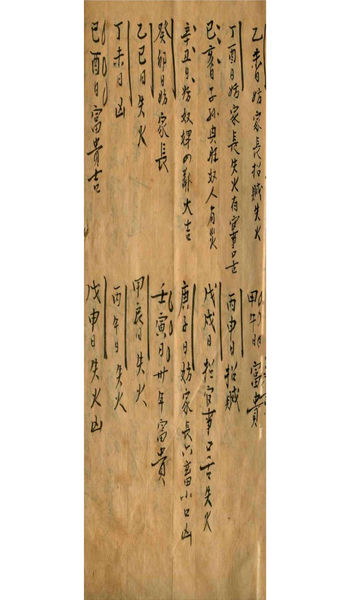 乙未日妨家長招賊失火
丁酉日妨家長失火有官事口舌
己亥日子孫與奴人有災
辛丑日妨奴婢大吉
癸卯日妨家長
乙巳日失火
丁未日凶
己酉日富貴吉
甲午日富貴
丙申日招賊
戊戌日招官事口舌失火
庚子日妨家長六畜小口凶
壬寅日卅年富貴
甲辰日失火
丙午日失火
戊申日失火凶